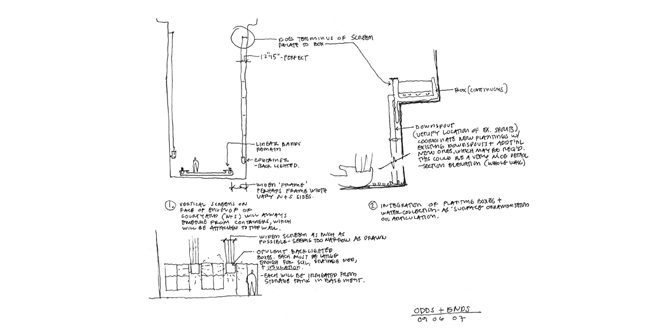 TERMINUS OF SCREEN
RELATE TO BOX
12"-15" - PERFECT
BOX (CONTINUOUS)
LINEAR BANKS
REMAIN
CONTAINER
- BACK LIGHTED.
DOWNSPOUT
(VERIFY LOCATION OF EX. SPOUTS)
COORDINATE NEW PLANTINGS W/
EXISTING DOWNSPOUTS + ADD'TNL
NEW ONES, WHICH MAY BE REQ'D.
THIS COULD BE A VERY NICE DETAIL
- SECTION ELEVATION (WHOLE WALL)
WIDEN 'FRAME'
PERHAPS FRAME WIDTH
VARY N+S SIDES.
1. VERTICAL SCREENS ON
FACE OF
COURTYARD (N+S) WILL ALWAYS
EMERGE FROM CONTAINERS, WHICH
WILL BE ATTACHED TO THE WALL.
2. INTEGRATION OF PLANTING BOXES +
WATER COLLECTION. AS 'SURFACE' ORNAMENTATION
OR ARTICULATION.
WIDEN SCREEN AS MUCH AS
POSSIBLE - SEEMS TOO NARROW AS DRAWN
OPULENT BACKLIGHTED
BOXES. EACH MUST BE LARGE
ENOUGH FOR SOIL, DRAINAGE MED,
+ INSULATION.
- EACH WILL BE IRRIGATED FROM
STORAGE TANK IN BASEMENT.
ODDS + ENDS
09 04 07